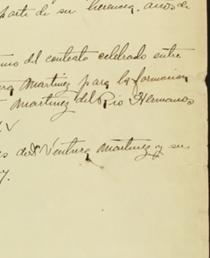 parte de su herencia, años de
del contrato celebrado entre
Martinez para la formacion
Martinez del Rio Hermanos
V
de Dn Ventura Martinez y su
y.